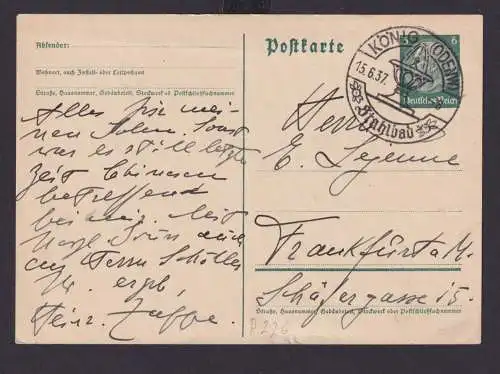 Absender:
Wohnort, auch Zustell- oder Leitpostamt
Straße, Hausnummer, Gebäudeteil, Stockwerk od. Postschließfachnummer
Postkarte
KÖNIG (ODENW)
15.6.37.
Stahlbad
6
Deutsches Reich
Alles für mei-
nen Sohn. Sonst
war es still letzte
Zeit
betreffend
bei mir. Mit
auch
an Herrn
Ihr ergb.
Heinr.
Herrn
E. Lejeune
Frankfurt a. M.
Schäfergasse 15.
Straße, Hausnummer, Gebäudeteil, Stockwerk oder Postschließfachnummer